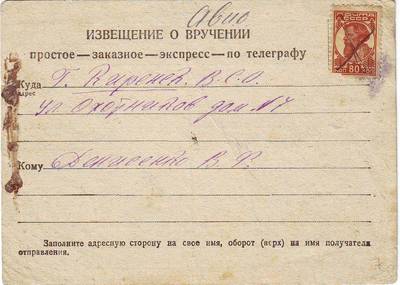 Авио
ИЗВЕЩЕНИЕ О ВРУЧЕНИИ
простое — заказное — экспресс — по телеграфу
Куда Г. Киренск. В.С.О.
адрес
ул Охотников дом №7
Кому Денисенко В. Ф.
Заполните адресную сторону на свое имя, оборот (верх) на имя получателя
отправления.
ПОЧТА
СССР
80